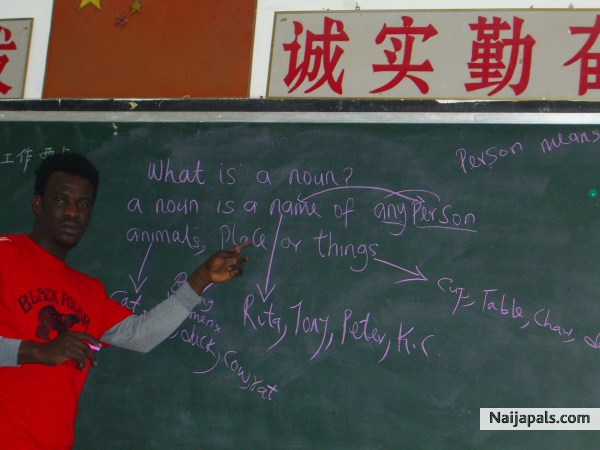 诚实勤奋
工作
Person means
What is a noun?
a noun is a name of any Person
animals, Place or things
Cat
Beijing
duck, Cow, rat
Rita, Tony, Peter, K.C
Cup, Table, Chair,
BLACK POLAR
Naijapals.com